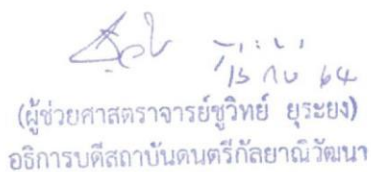 15 กย 64
(ผู้ช่วยศาสตราจารย์ชูวิทย์ ยุระยง)
อธิการบดีสถาบันดนตรีกัลยาณิวัฒนา